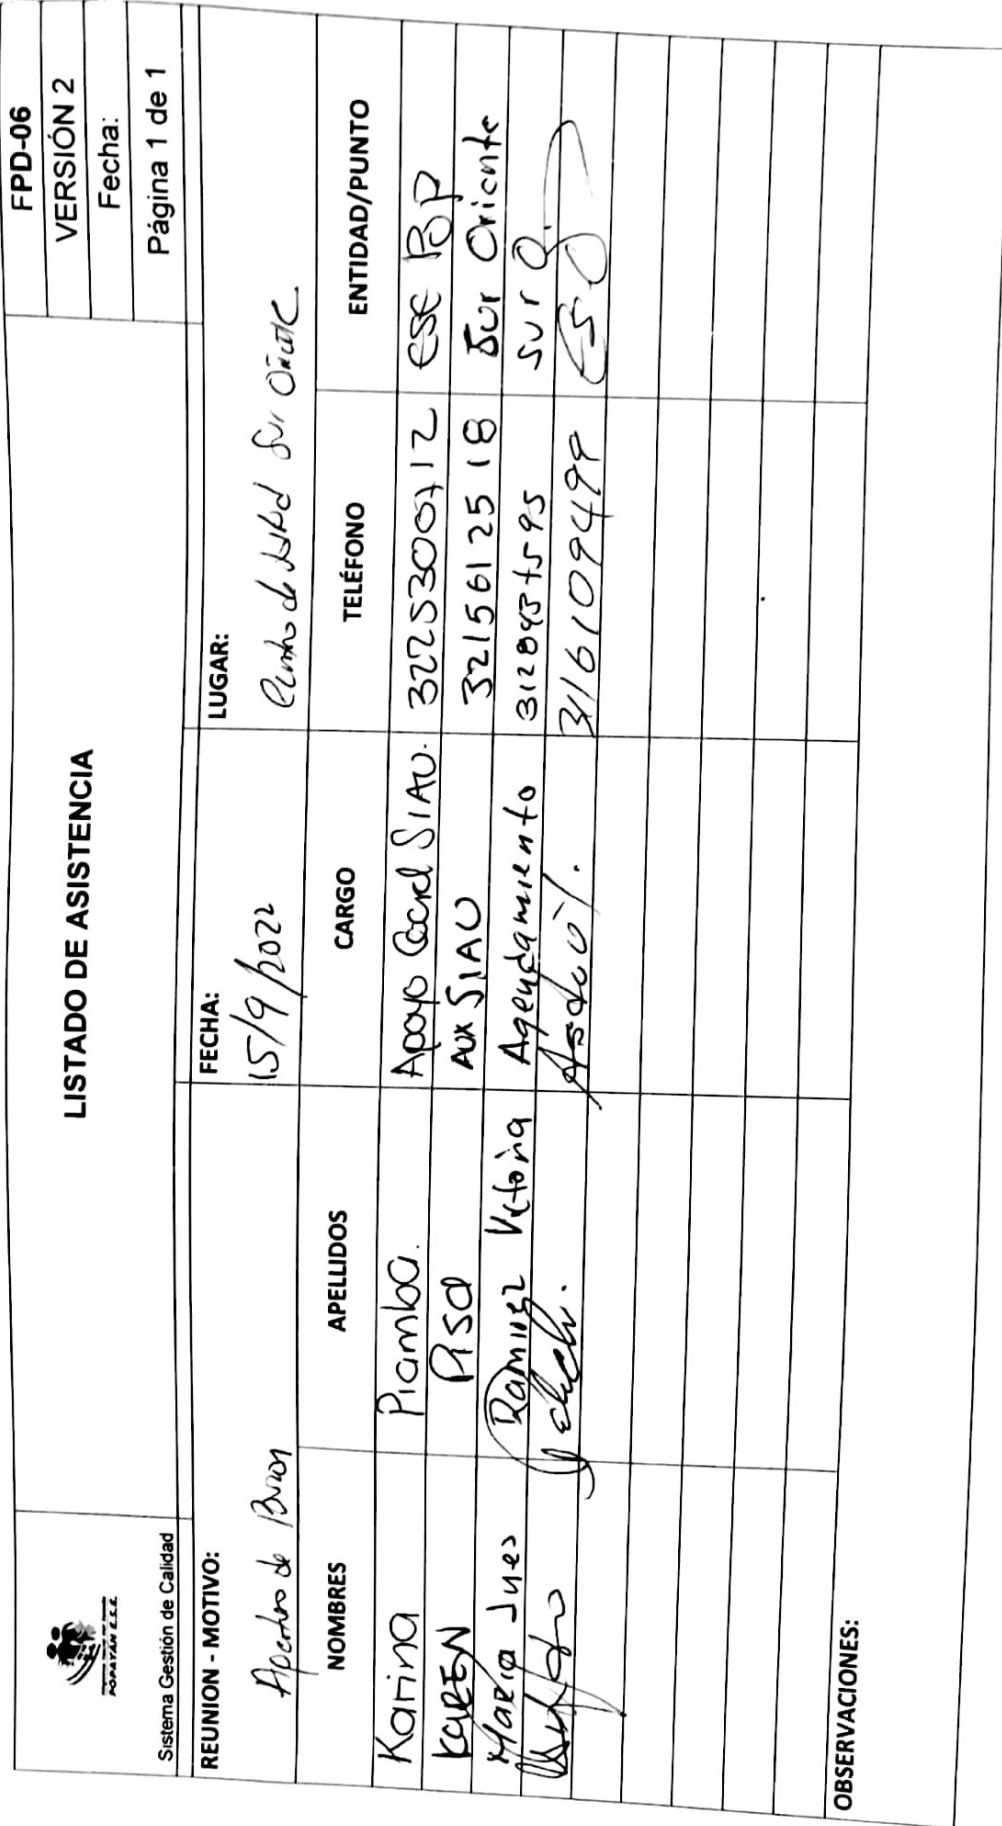 POPAYÁN E.S.E.
Sistema Gestión de Calidad
LISTADO DE ASISTENCIA
FPD-06
VERSIÓN 2
Fecha:
Página 1 de 1
REUNION - MOTIVO:
FECHA:
LUGAR:
de
15/9/2022
de Sur
NOMBRES APELLIDOS CARGO TELÉFONO ENTIDAD/PUNTO
Karina Piamba. Apoyo SIAU. 3225300712 ESE POP
KAREN Pisa AUX SIAU 3215612518 Sur Oriente
Maria Ines Ramirez Victoria Agendamiento Sur O.
3116109499
OBSERVACIONES: